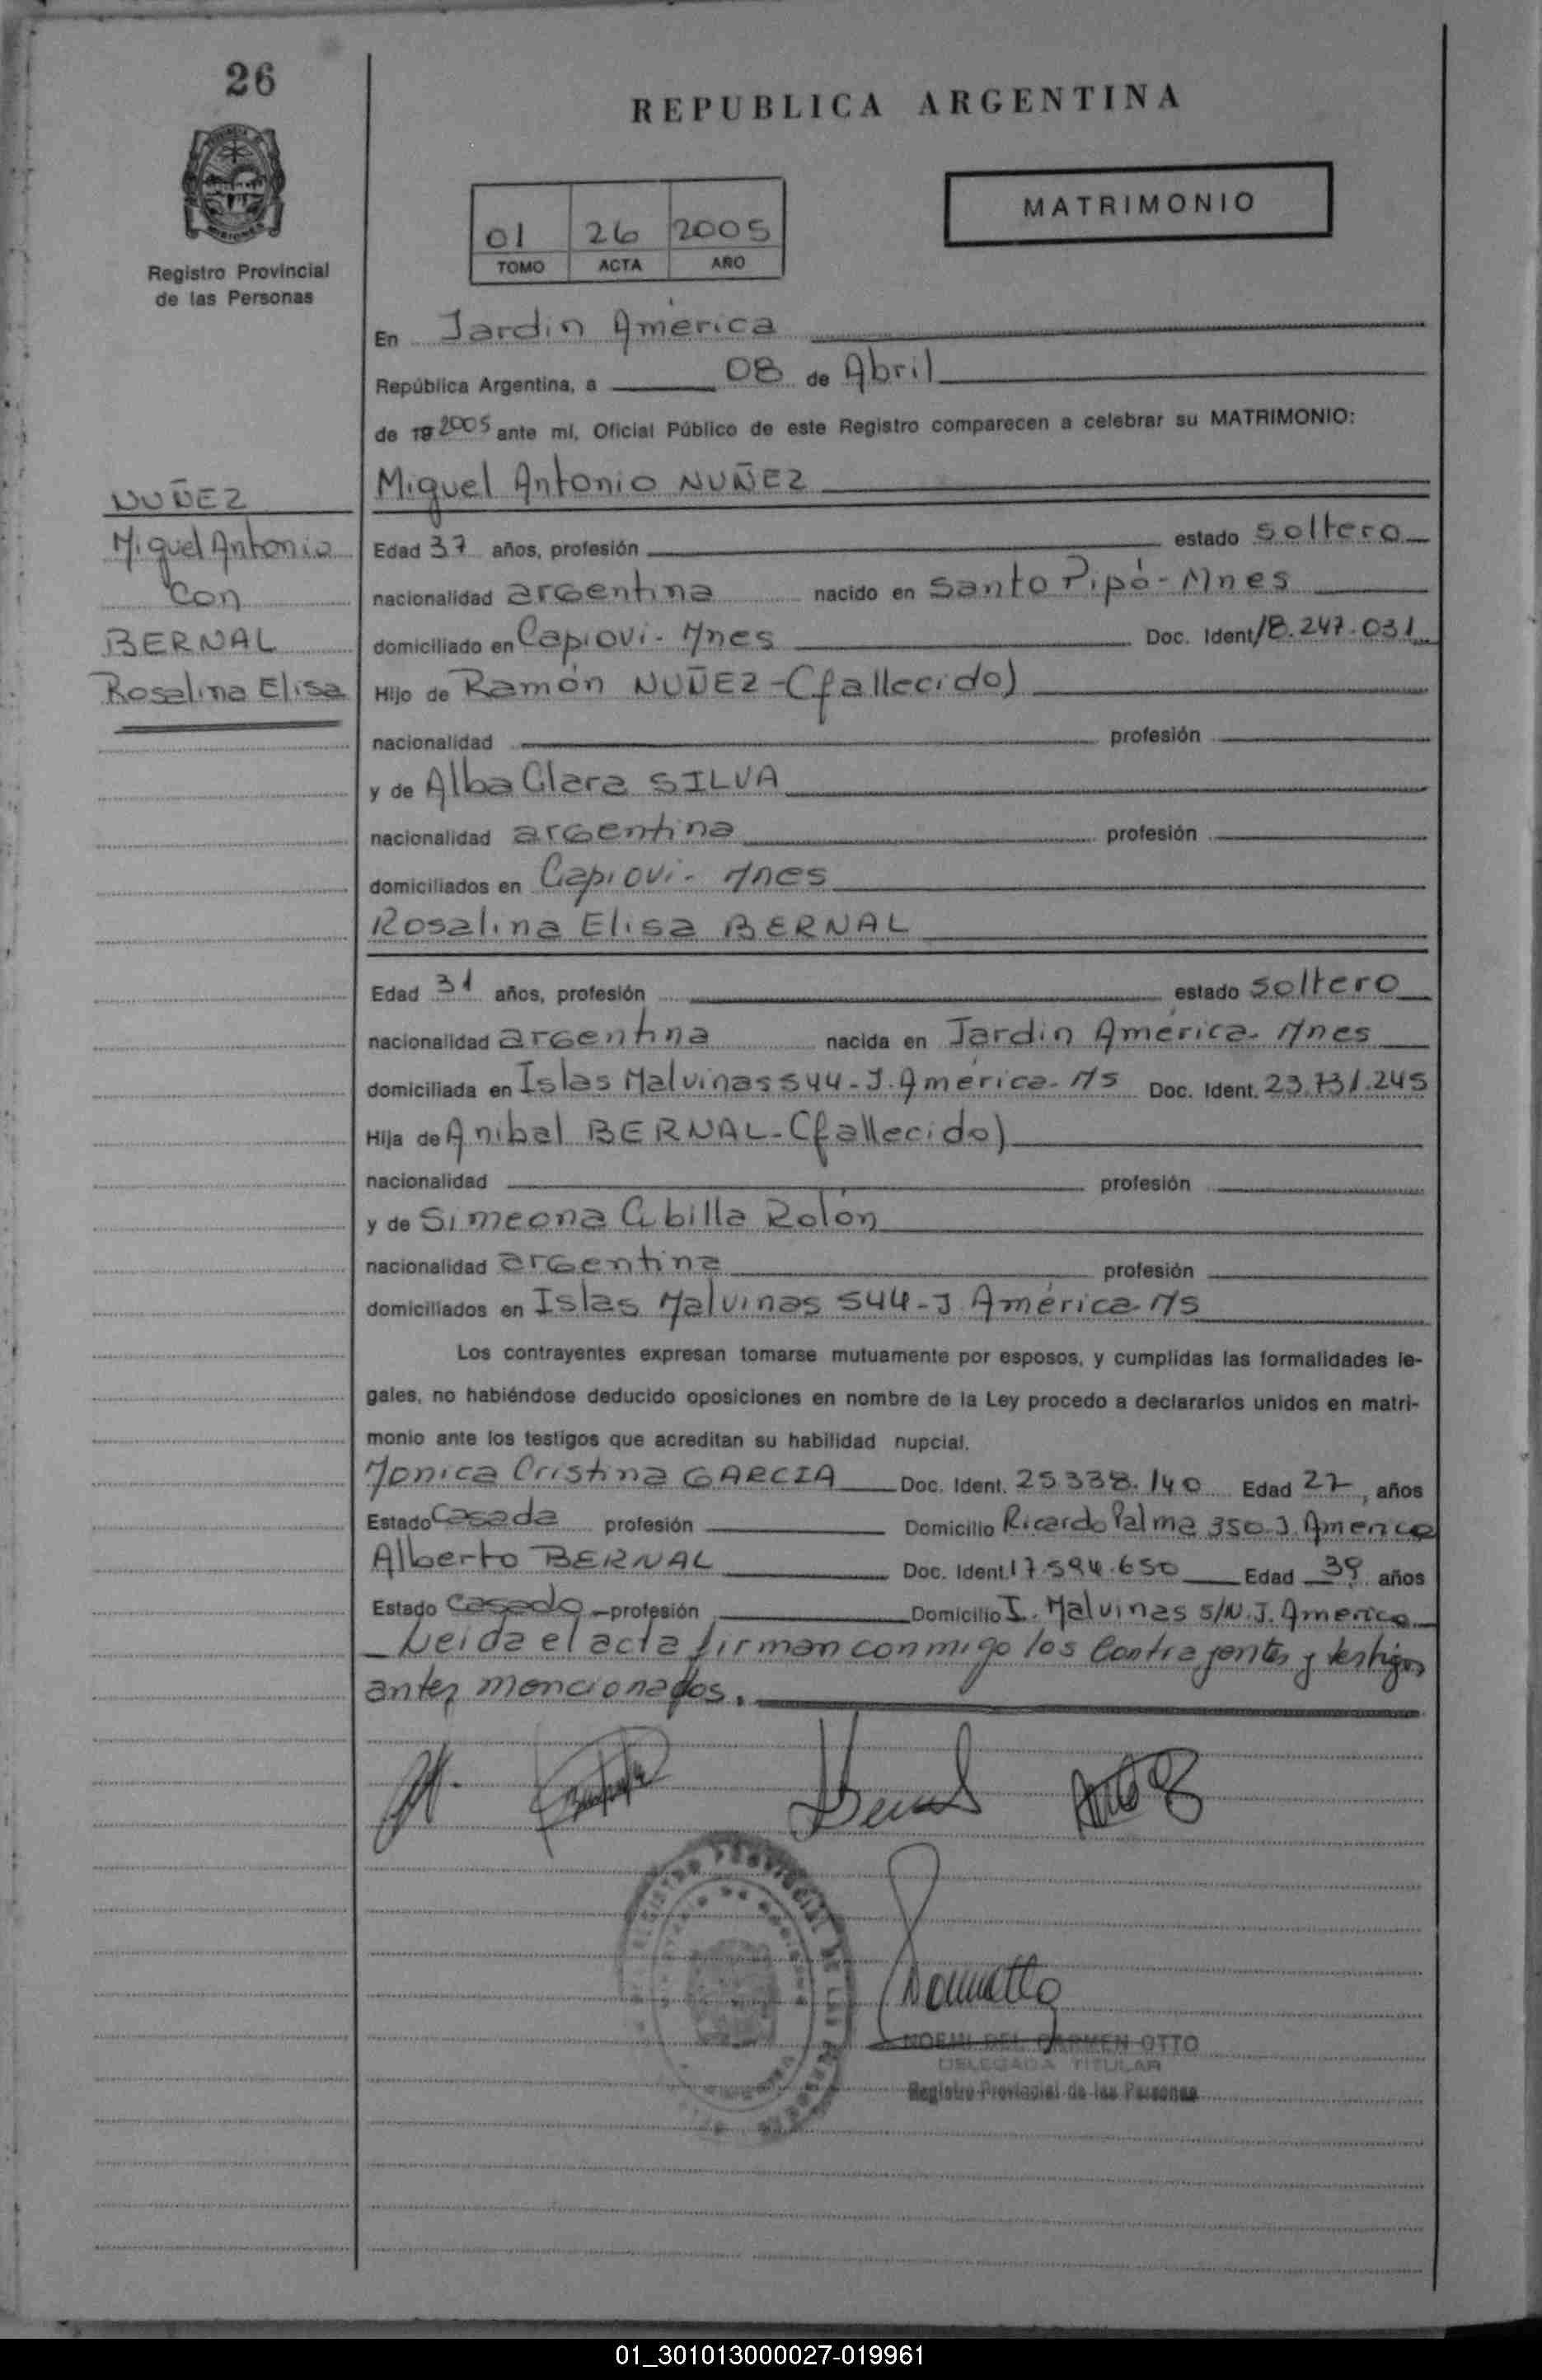 26
REPUBLICA ARGENTINA
MATRIMONIO
01 26 2005
TOMO ACTA AÑO
Registro Provincial
de las Personas
En Jardín América
República Argentina, a 08 de Abril
de 19 2005 ante mi, Oficial Público de este Registro comparecen a celebrar su MATRIMONIO:
NUÑEZ
Miguel Antonio
Con
BERNAL
Rosalina Elisa
Miguel Antonio NUÑEZ
Edad 37 años, profesión estado soltero
nacionalidad argentina nacido en Santo Pipó - Mnes
domiciliado en Capiovi - Mnes Doc. Ident. 18.247.031
Hijo de Ramón NUÑEZ - (fallecido)
nacionalidad profesión
y de Alba Clara SILVA
nacionalidad argentina profesión
domiciliados en Capiovi - Mnes
Rosalina Elisa BERNAL
Edad 31 años, profesión estado soltero
nacionalidad argentina nacida en Jardín América - Mnes
domiciliada en Islas Malvinas 544 - J. América - Ms Doc. Ident. 23.731.245
Hija de Anibal BERNAL - (fallecido)
nacionalidad profesión
y de Simeona Cubilla Rolón
nacionalidad argentina profesión
domiciliados en Islas Malvinas 544 - J América Ms
Los contrayentes expresan tomarse mutuamente por esposos, y cumplidas las formalidades le-
gales, no habiéndose deducido oposiciones en nombre de la Ley procedo a declararlos unidos en matri-
monio ante los testigos que acreditan su habilidad nupcial.
Monica Cristina GARCIA Doc. Ident. 25.338.140 Edad 27, años
Estado Casada profesión Domicilio Ricardo Palma 350 J. America
Alberto BERNAL Doc. Ident. 17.594.650 Edad 39 años
Estado Casado profesión Domicilio I. Malvinas S/N. J. America
Leida el acta firman conmigo los Contrayentes y testigos
antes mencionados.
NOEMI DEL CARMEN OTTO
DELEGADA TITULAR
Registro Provincial de las Personas
01_301013000027-019961